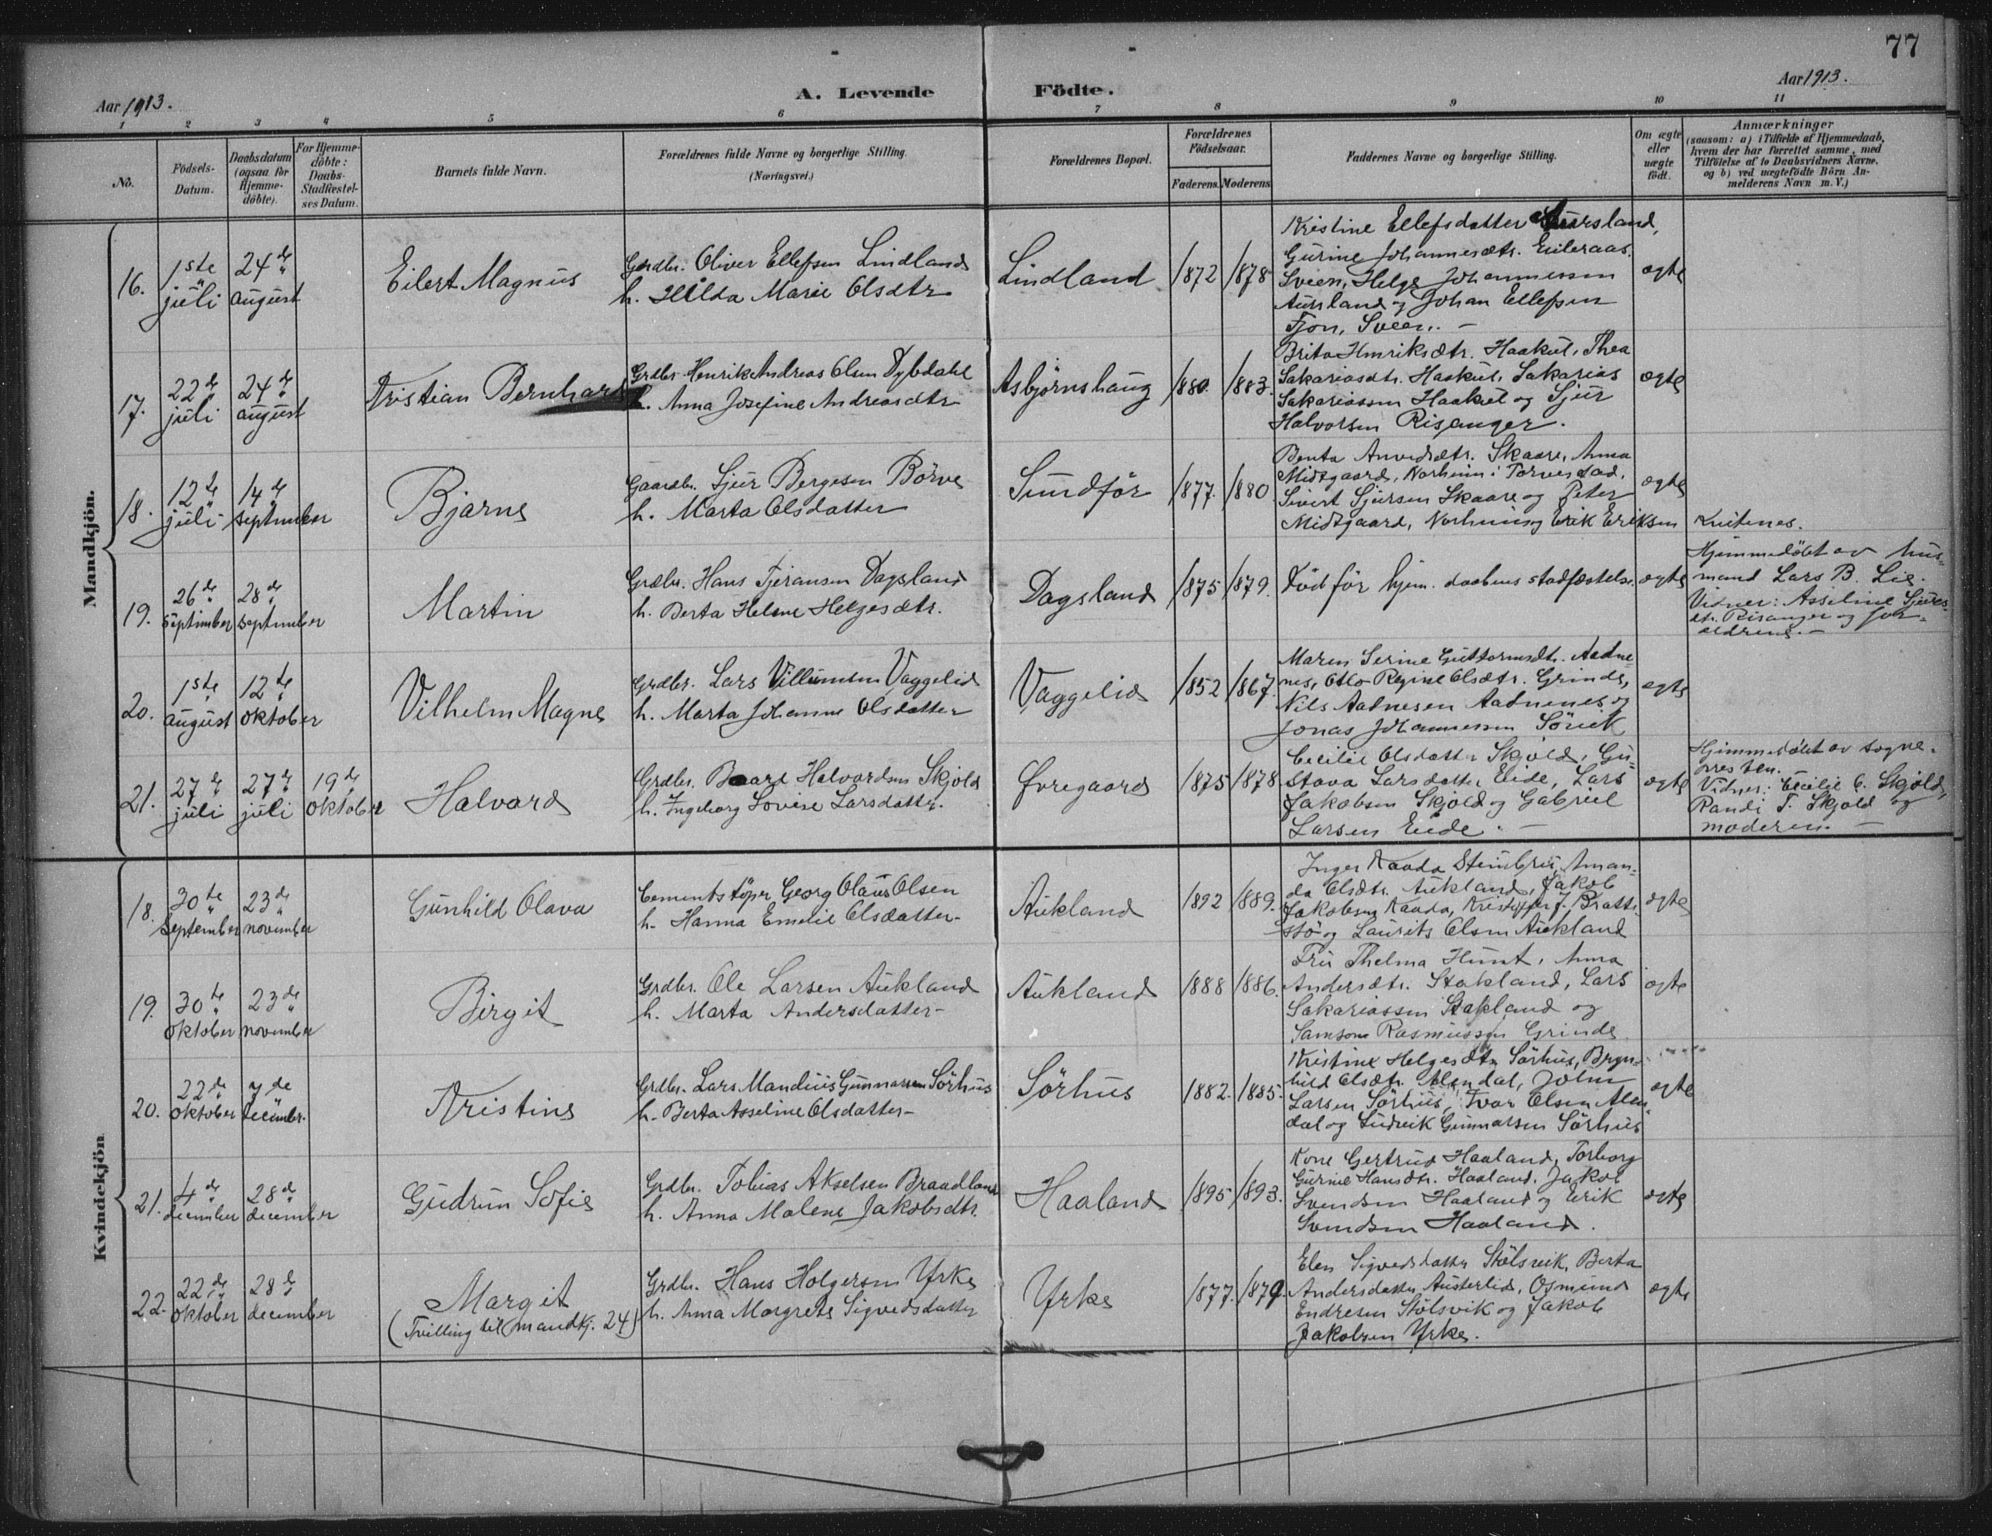 77
Aar 1913.
A. Levende Födte.
Aar 1913.
1 2 3 4 5 6 7 8 9 10 11
No.
Födsels-
Datum.
Daabsdatum
(ogsaa for
Hjemme-
döbte).
For Hjemme-
döbte:
Daabs-
Stadfæstel-
ses Datum.
Barnets fulde Navn.
Forældrenes fulde Navne og borgerlige Stilling.
(Næringsvei.)
Forældrenes Bopæl.
Forældrenes
Födselsaar.
Faderens.
Moderens
Faddernes Navne og borgerlige Stilling.
Om ægte
eller
uægte
födt.
Anmærkninger
(saasom: a) i Tilfælde af Hjemmedaab,
hvem der har forrettet samme, med
Tilföielse af to Daabsvidners Navne,
og b) ved uægtefödte Börn An-
melderens Navn m. V.)
Mandkjön.
16.
1ste
juli
24de
august
Eilert Magnus
Grdbr. Oliver Ellefsen Lindland
h. Hilda Marie Olsdtr
Lindland
1872
1878
Kristine Ellefsdatter
Gurine Johannesdtr. Eileraas.
Sveen, Helge Johannessen
Aursland og Johan Ellefsen
Fjon, Sveen. –
ægte
17.
22de
juli
24de
august
Kristian Bernhard
Grdbr. Henrik Andreas Olsen Dybdahl
h. Anna Josefine Andreasdtr
Asbjørnshaug
1880
1883.
Brita Henriksdtr. Haakul, Thea
Sakariasdtr. Haakul, Sakarias
Sakariassen Haakul og Sjur
Halvorsen Risanger.
ægte
18.
12te
juli
14de
september
Bjarne
Gaardbr. Sjur Bergesen Børve
h. Marta Olsdatter
Sundfør
1877.
1880
Berta Skaare, Anna
Midtgaard, Norheim i Torvestad,
Sivert Sjursen Skaare og Peter
Midtgaard, Norheim og Erik Eriksen
ægte
Kvitenes.
19.
26de
september
28de
september
Martin
Grdbr. Hans Tjeransen Dagsland
h. Berta Helene Helgesdtr.
Dagsland
1875
1879.
Död før hjem. daabens stadfæstelse
ægte
Hjemmedøbt av hus-
mand Lars B. Lie.
Vidner: Asseline Sjurs-
dtr. Risanger og for-
ældrene. –
20.
1ste
august
12te
oktober
Vilhelm Magne
Grdbr. Lars Villumsen Vaggelid
h. Marta Johanne Olsdatter
Vaggelid
1852
1867.
Maren Serine Guttormsdtr. Aadne-
nes, Regine Olsdtr. Grinde,
Nils Aadnesen Aadnenes og
Jonas Johannessen Sørvik
ægte
21.
27de
juli
27de
juli
19de
oktober
Halvard
Grdbr. Baard Halvardsen Skjold
h. Ingeborg Lovise Larsdatter.
Øvregaard
1875
1878
Cecilie Olsdatter Skjold, Gu-
stava Larsdatter Eide, Lars
Jakobsen Skjold og Gabriel
Larsen Eide. –
ægte
Hjemmedøbt av sogne-
presten.
Vidner: Cecilie O. Skjold,
Randi T. Skjold og
moderen. –
Kvindekjön
18.
30te
September
23de
november
Gunhild Olava
Cementstøper Georg Olaus Olsen
h. Hanna Emelie Olsdatter–
Aukland
1892
1889.
Inger Kaada Steinbru, Aman-
da Olsdtr. Aukland, Jakob
Jakobsen Kaada, Kristoffer J. Bratt-
stø og Laurits Olsen Aukland
ægte
19.
30te
oktober
23de
november
Birgit
Grdbr. Ole Larsen Aukland
h. Marta Andersdatter–
Aukland
1888
1886.
Fru Thelma Hunt, Anna
Andersdtr. Stakland, Lars
Sakariassen Stakland og
Samson Rasmussen Grinde
ægte
20.
22de
oktober
7de
december.
Kristine
Grdbr. Lars Mandius Gunnarsen Sørhus
h. Berta Asseline Olsdatter–
Sørhus
1882.
1885.
Kristine Helgesdtr Sørhus, Bryn-
hild Olsdtr. Alendal, John
Larsen Sørhus, Ivar Olsen Alen-
dal og Ludvik Gunnarsen Sørhus
ægte
21.
4de
december
28de
december
Gudrun Sofie
Grdbr. Tobias Akselsen Braadland
h. Anna Malene Jakobsdtr.
Haaland
1895
1893.
Kone Gertrud Haaland, Torborg
Gurine Hansdtr. Haaland, Jakob
Svendsen Haaland og Erik
Svendsen Haaland.
ægte
22.
22de
oktober
28de
december
Margit
(Tvilling til mandkj. 24)
Grdbr. Hans Holgersen Yrke
h. Anna Margrete Sigvedsdatter
Yrke
1877.
1879.
Elen Sigvedsdatter Stølsvik, Berta
Andersdatter Austerlid, Osmund
Endresen Stølsvik og Jakob
Jakobsen Yrke.
ægte